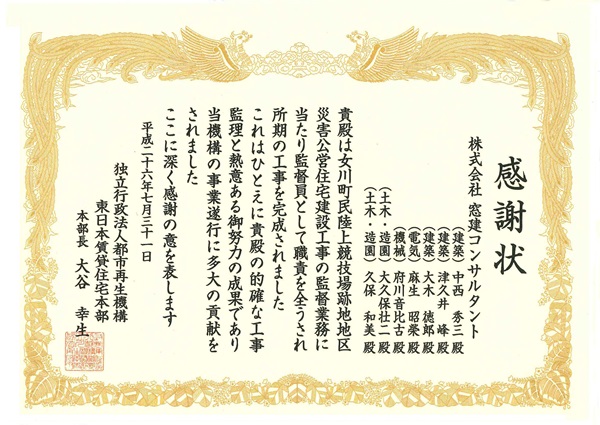 感謝状
株式会社 窓建コンサルタント
(建築) 中西 秀三殿
(建築) 津久井 峰殿
(建築) 大木 徳郎殿
(電気) 麻生 昭榮殿
(機械) 府川音比古殿
(土木・造園) 大久保壮二殿
(土木・造園) 久保 和美殿
貴殿は女川町民陸上競技場跡地地区
災害公営住宅建設工事の監督業務に
当たり監督員として職責を全うされ
所期の工事を完成されました
これはひとえに貴殿の的確な工事
監理と熱意ある御努力の成果であり
当機構の事業遂行に多大の貢献を
されました
ここに深く感謝の意を表します
平成二十六年七月三十一日
独立行政法人都市再生機構
東日本賃貸住宅本部
本部長 大谷 幸生